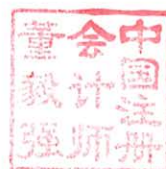 中国注册
会计师
董毅强